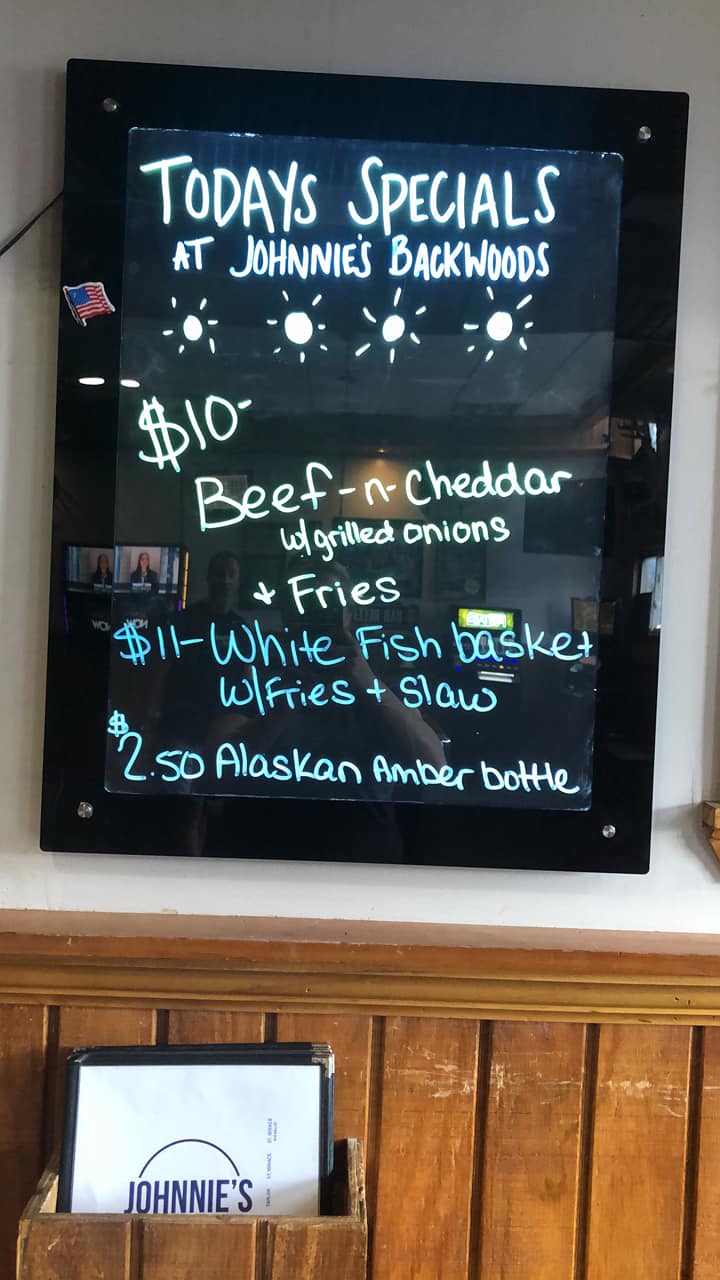 TODAYS SPECIALS
AT JOHNNIE'S BACKWOODS
$10-
Beef-n-Cheddar
w/grilled onions
+ Fries
$11-White Fish basket
w/Fries + Slaw
$2.50 Alaskan Amber bottle
JOHNNIE'S